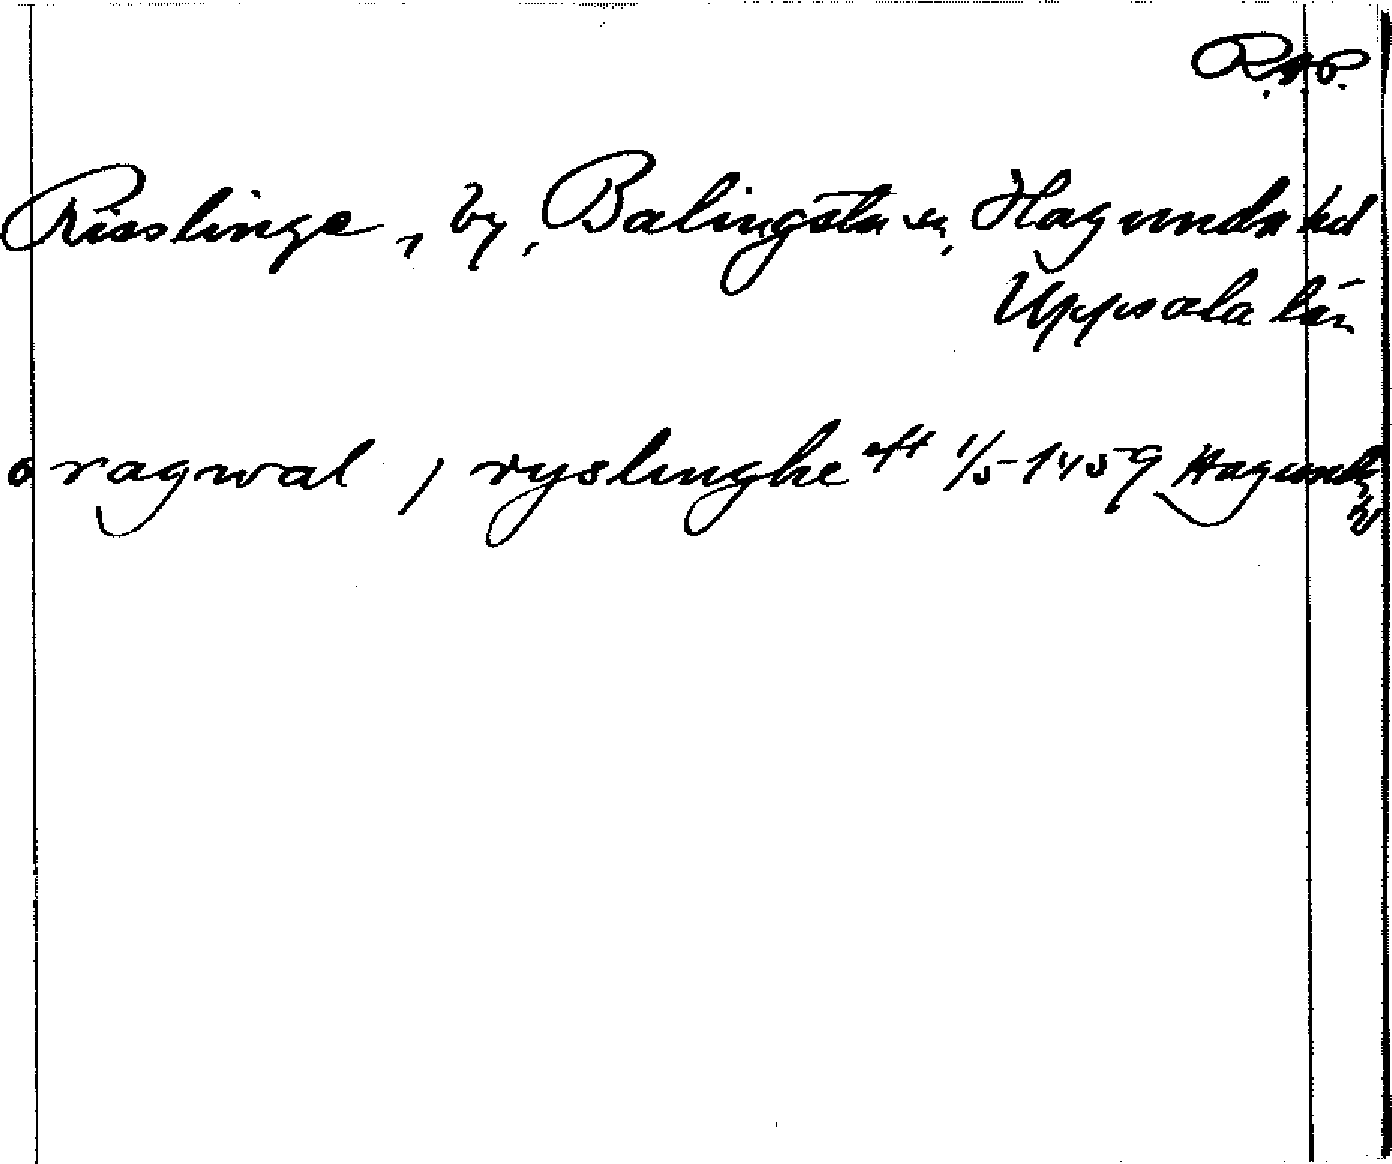 R.A.P.
Risslinge, by, Balingsta sn, Hagunda hd
Uppsala län
o ragwal j ryslinghe aft 1/5 1459 Hagunda